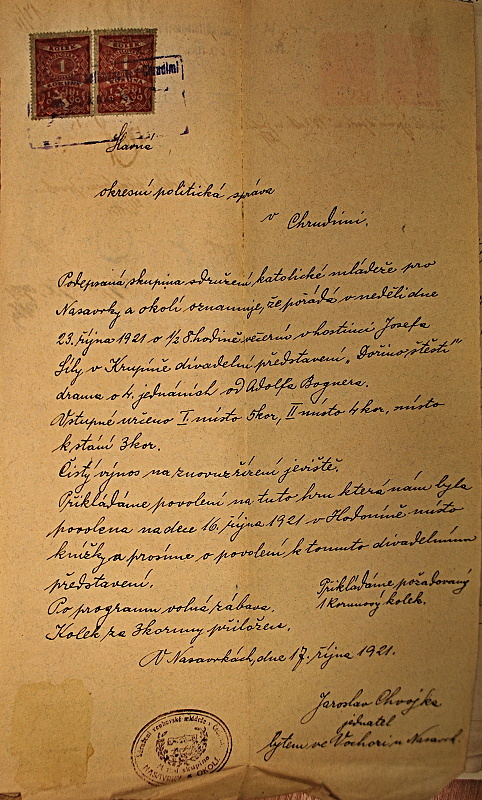 KOLEK KOLEK
1 1
Slavná
okresní politická správa
v
Chrudimi.
Podepsaná skupina sdružení katolické mládeže pro
Nasavrky a okolí oznamuje, že pořádá v neděli dne
23. října 1921 o 1/2 8 hodině večerní v hostinci Josefa
Síly v Krupíně divadelní představení „Dořino štěstí"
drama o 4. jednáních od Adolfa Bognera.
Vstupné určeno I místo 5 kor, II místo 4 kor, místo
k stání 3 kor.
Čistý výnos na znovuzřízení jeviště.
Přikládáme povolení na tuto hru která nám byla
povolena na dece 16. října 1921 v Hodoníně místo
knížky a prosíme o povolení k tomuto divadelnímu
představení.
Přikládáme požadovaný
1 korunový kolek.
Po programu volná zábava.
Kolek za 3 koruny přiložen.
V Nasavrkách, dne 17. října 1921.
Jaroslav Chvojka
jednatel
bytem ve
NASAVRKY A OKOLÍ